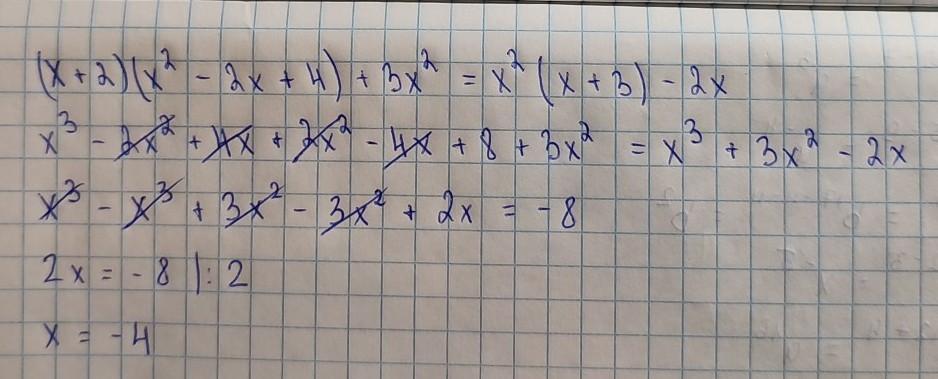 (x+2)(x² - 2x + 4) + 3x² = x² (x + 3) - 2x
x³ - 2x² + 4x + 2x² - 4x + 8 + 3x² = x³ + 3x² - 2x
x³ - x³ + 3x² - 3x² + 2x = -8
2x = -8 |: 2
x = -4